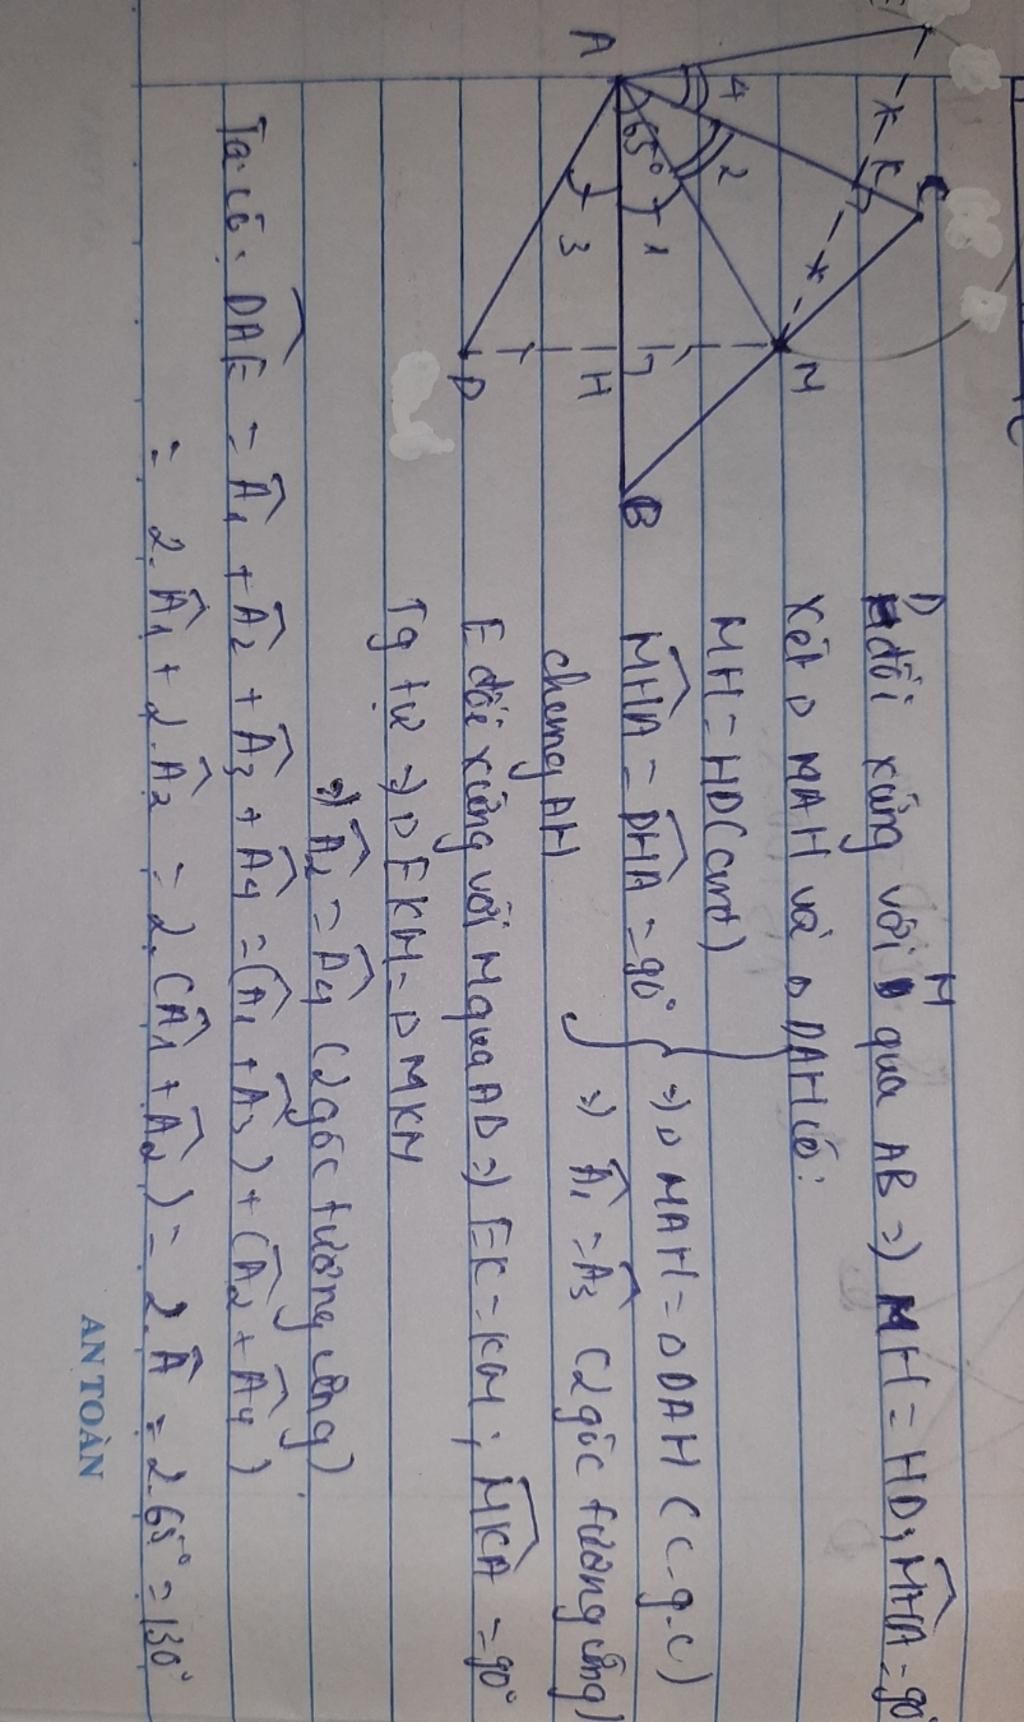 A
4
65°
2
1
3
K
C
M
H
D
B
D đối xứng với M qua AB => MH = HD; MHA = 90°
Xét Δ MAH và Δ DAH có:
MH = HD (cmt)
MHA = DHA = 90° => Δ MAH = Δ DAH (c-g.c)
chung AH => Â1 = Â3 (2 góc tương ứng)
E đối xứng với M qua AB => EK = KM; MKA = 90°
Tg tự => Δ EKM = Δ MKM
=> Â2 = Â4 (2 góc tương ứng)
Ta có: DAE = Â1 + Â2 + Â3 + Â4 = (Â1 + Â3) + (Â2 + Â4)
= 2.Â1 + 2.Â2 = 2.(Â1 + Â2) = 2.Â = 2.65° = 130°
AN TOÀN